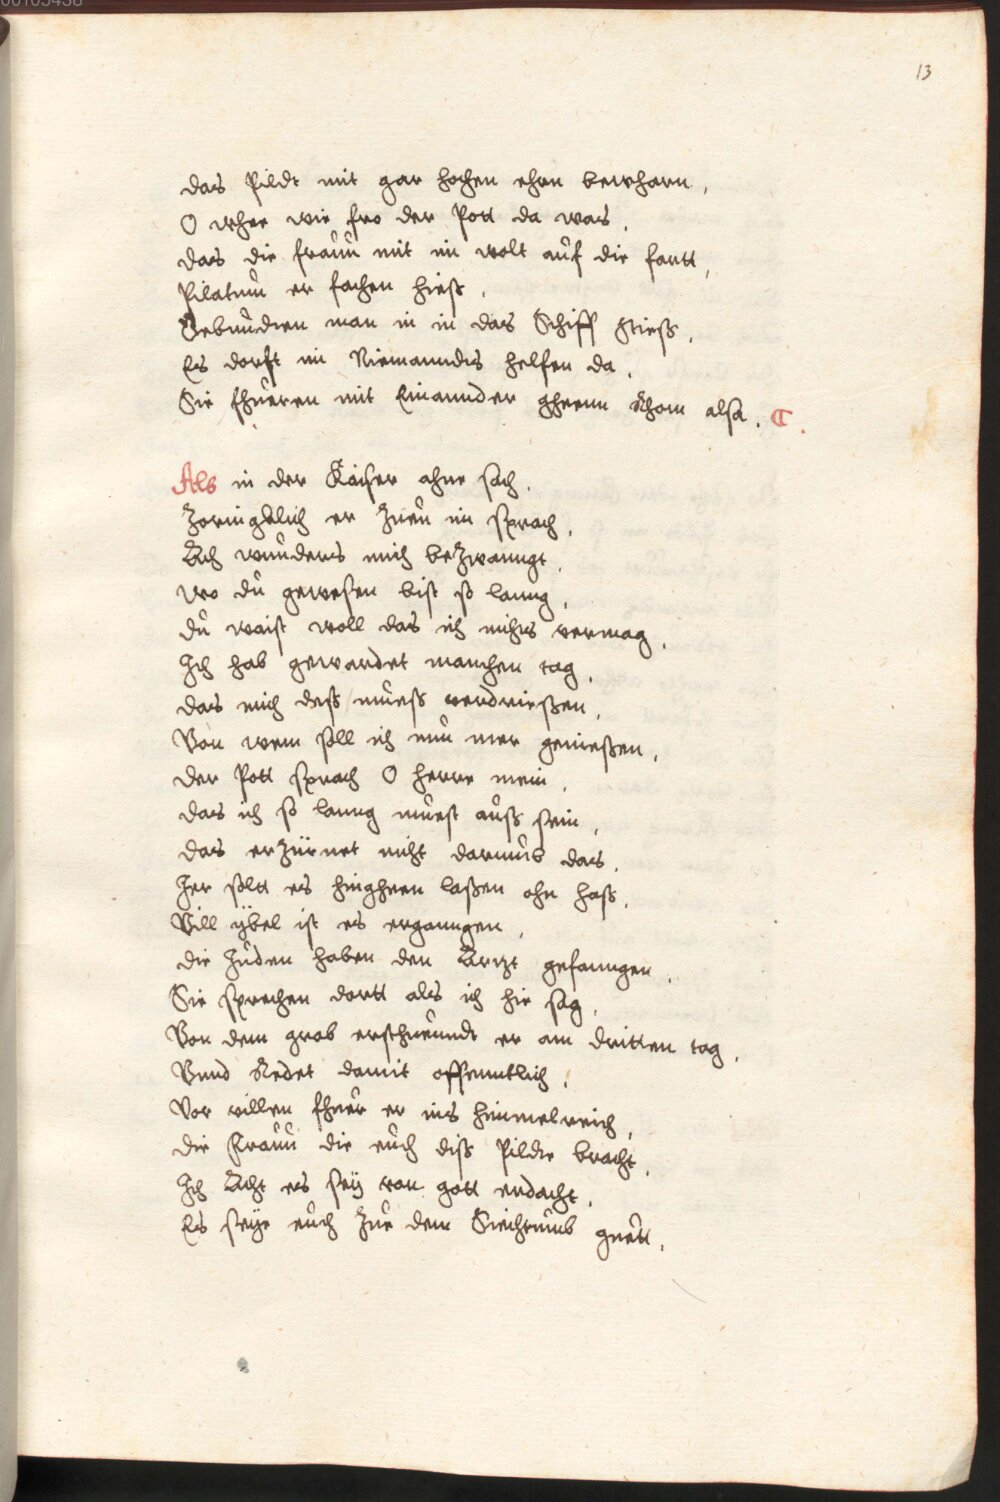 00105458
13
das Pildt mit gar hochen ehrn bewharn,
O wher wie fro der Pott da was,
das die frauu mit im wolt auf die fartt,
Pilatum er fachen hiess,
Gebundten man in in das Schiff stiess,
Es dorft im Niemanndts helfen da,
Sie fhueren mit Einannder gheenn Rhom alsa.
Als in der Kaiser ahne sach,
Zoringklich er Zueu im sprach,
Ach wunders mich beZwanngt,
wo du gewesen bist so lanng,
du waist woll das ich nichts vermag,
Ich hab gewardet manchen tag,
das mich dess muess verdriessen,
Von wem soll ich nun mer geniessen,
der Pott sprach O herre mein,
das ich so lanng muest auss sein,
das erZürnet nicht darumb das,
Her soltt es hinngheen lassen ohn hass,
Vill ybel ist es erganngen,
die Juden haben den Artzt gefanngen,
Sie sprechen dortt als ich hie sag,
Von dem grab erschtuenndt er am dritten tag,
Vnnd Redet damit offenntlich,
Vor villen fhuer er ins himmelreich,
die Frauu die euch diss Pildte bracht,
Ich Acht es sey von gott erdacht,
Es seye euch Zue dem Siechtumb guett,